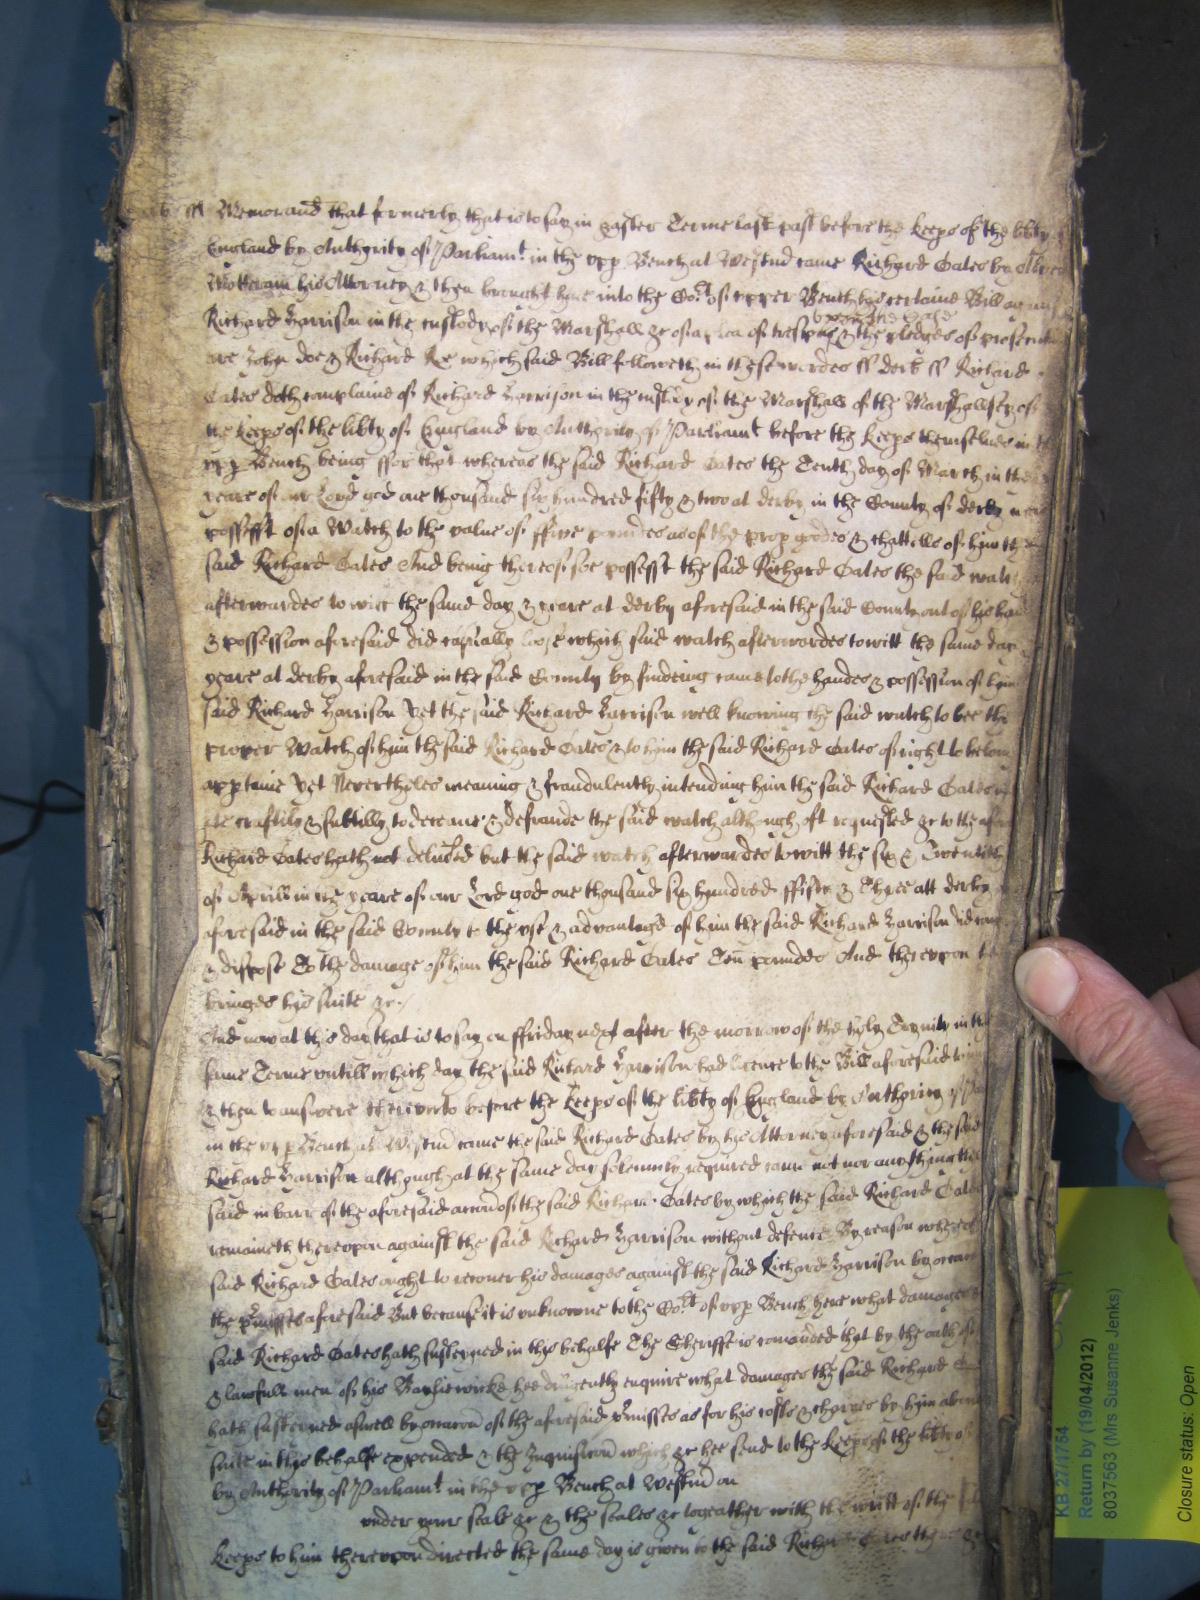 Memorand that formerly that is to say in Easter Terme last past before the Keeps of the libty
England by Authority of Parliamt in the upp Bench at Westm̄ came Richard Oates by
his Attorney & then brought here into the Cort of upper Bench his certaine Bill against
upon the Case
Richard Harrison in the custody of the Marshall &c of a plea of trespas & the pledges of prosecut
are John doe & Richard Roe which said Bill followeth in these wordes ss Derb ss Richard
Oates doth complaine of Richard Harrison in the custdy of the Marshall of the Marshallsey of
the Keeps of the libty of England by Authority of Parliamt before the Keeps themselves in
upp Bench being ffor that whereas the said Richard Oates the Tenth day of March in the
yeare of our Lord god one thousand six hundred fifty & two at derby in the County of derby was
possesst of a Watch to the value of ffive poundes as of the prop goodes & chattells of him the
said Richard Oates And being thereof soe possesst the said Richard Oates the said watch
afterwardes to witt the same day & yeare at derby aforesaid in the said County out of his hand
& possession aforesaid did casually loose which said watch afterwardes to witt the same day
yeare at derby aforesaid in the said County by findeing came to the handes & possession of him
said Richard Harrison Yet the said Richard Harrison well knowing the said watch to bee the
proper Watch of him the said Richard Oates & to him the said Richard Oates of right to belong
apptaine Yet Nevertheles meaning & fraudulently intending him the said Richard Oates
craftily & subtilly to deceave & defraude the said watch although oft requested &c to the afore
Richard Oates hath not delived but the said watch afterwardes to witt the six & Twentith
of Aprill in the yeare of our Lord god one thousand six hundred ffifty & Three att derby
aforesaid in the said County to the use & advantage of him the said Richard Harrison did
& dispose To the damage of him the said Richard Oates Ten poundes And thereupon
bringes his suite &c
And now at this day that is to say on ffriday next after the morrow of the holy Trinity in the
same Terme untill which day the said Richard Harrison had licence to the Bill aforesaid to
& then to answere thereunto before the Keeps of the libty of England by Authority of
in the upp Bench at Westm̄ came the said Richard Oates by his Attorney aforesaid & the said
Richard Harrison although at the same day solemnly required came not nor anything
said in barr of the aforesaid accon of the said Richard Oates by which the said Richard Oates
remaineth thereupon against the said Richard Harrison without defence By reason whereof
said Richard Oates ought to recover his damages against the said Richard Harrison by occacon
the p̄misses aforesaid But because it is unknowne to the Cort of upp Bench here what damages
said Richard Oates hath susteyned in this behalfe The Sheriffe is comanded that by the oath of
& lawfull men of his Bayliewicke hee diligently enquire what damages the said Richard
hath susteyned aswell by occacon of the aforesaid p̄misses as for his costs & charges by him about
suite in this behalfe expended & the Inquisicon which &c hee send to the Keeps of the libty of
by Authority of Parliamt in the upp Bench at Westm̄ on
under your seale &c & the seales &c togeather with the writt of the
Keeps to him thereupon directed the same day is given to the said Richard Oates there &c
KB 27/1754
Return by (19/04/2012)
8037563 (Mrs Susanne Jenks)
Closure status: Open